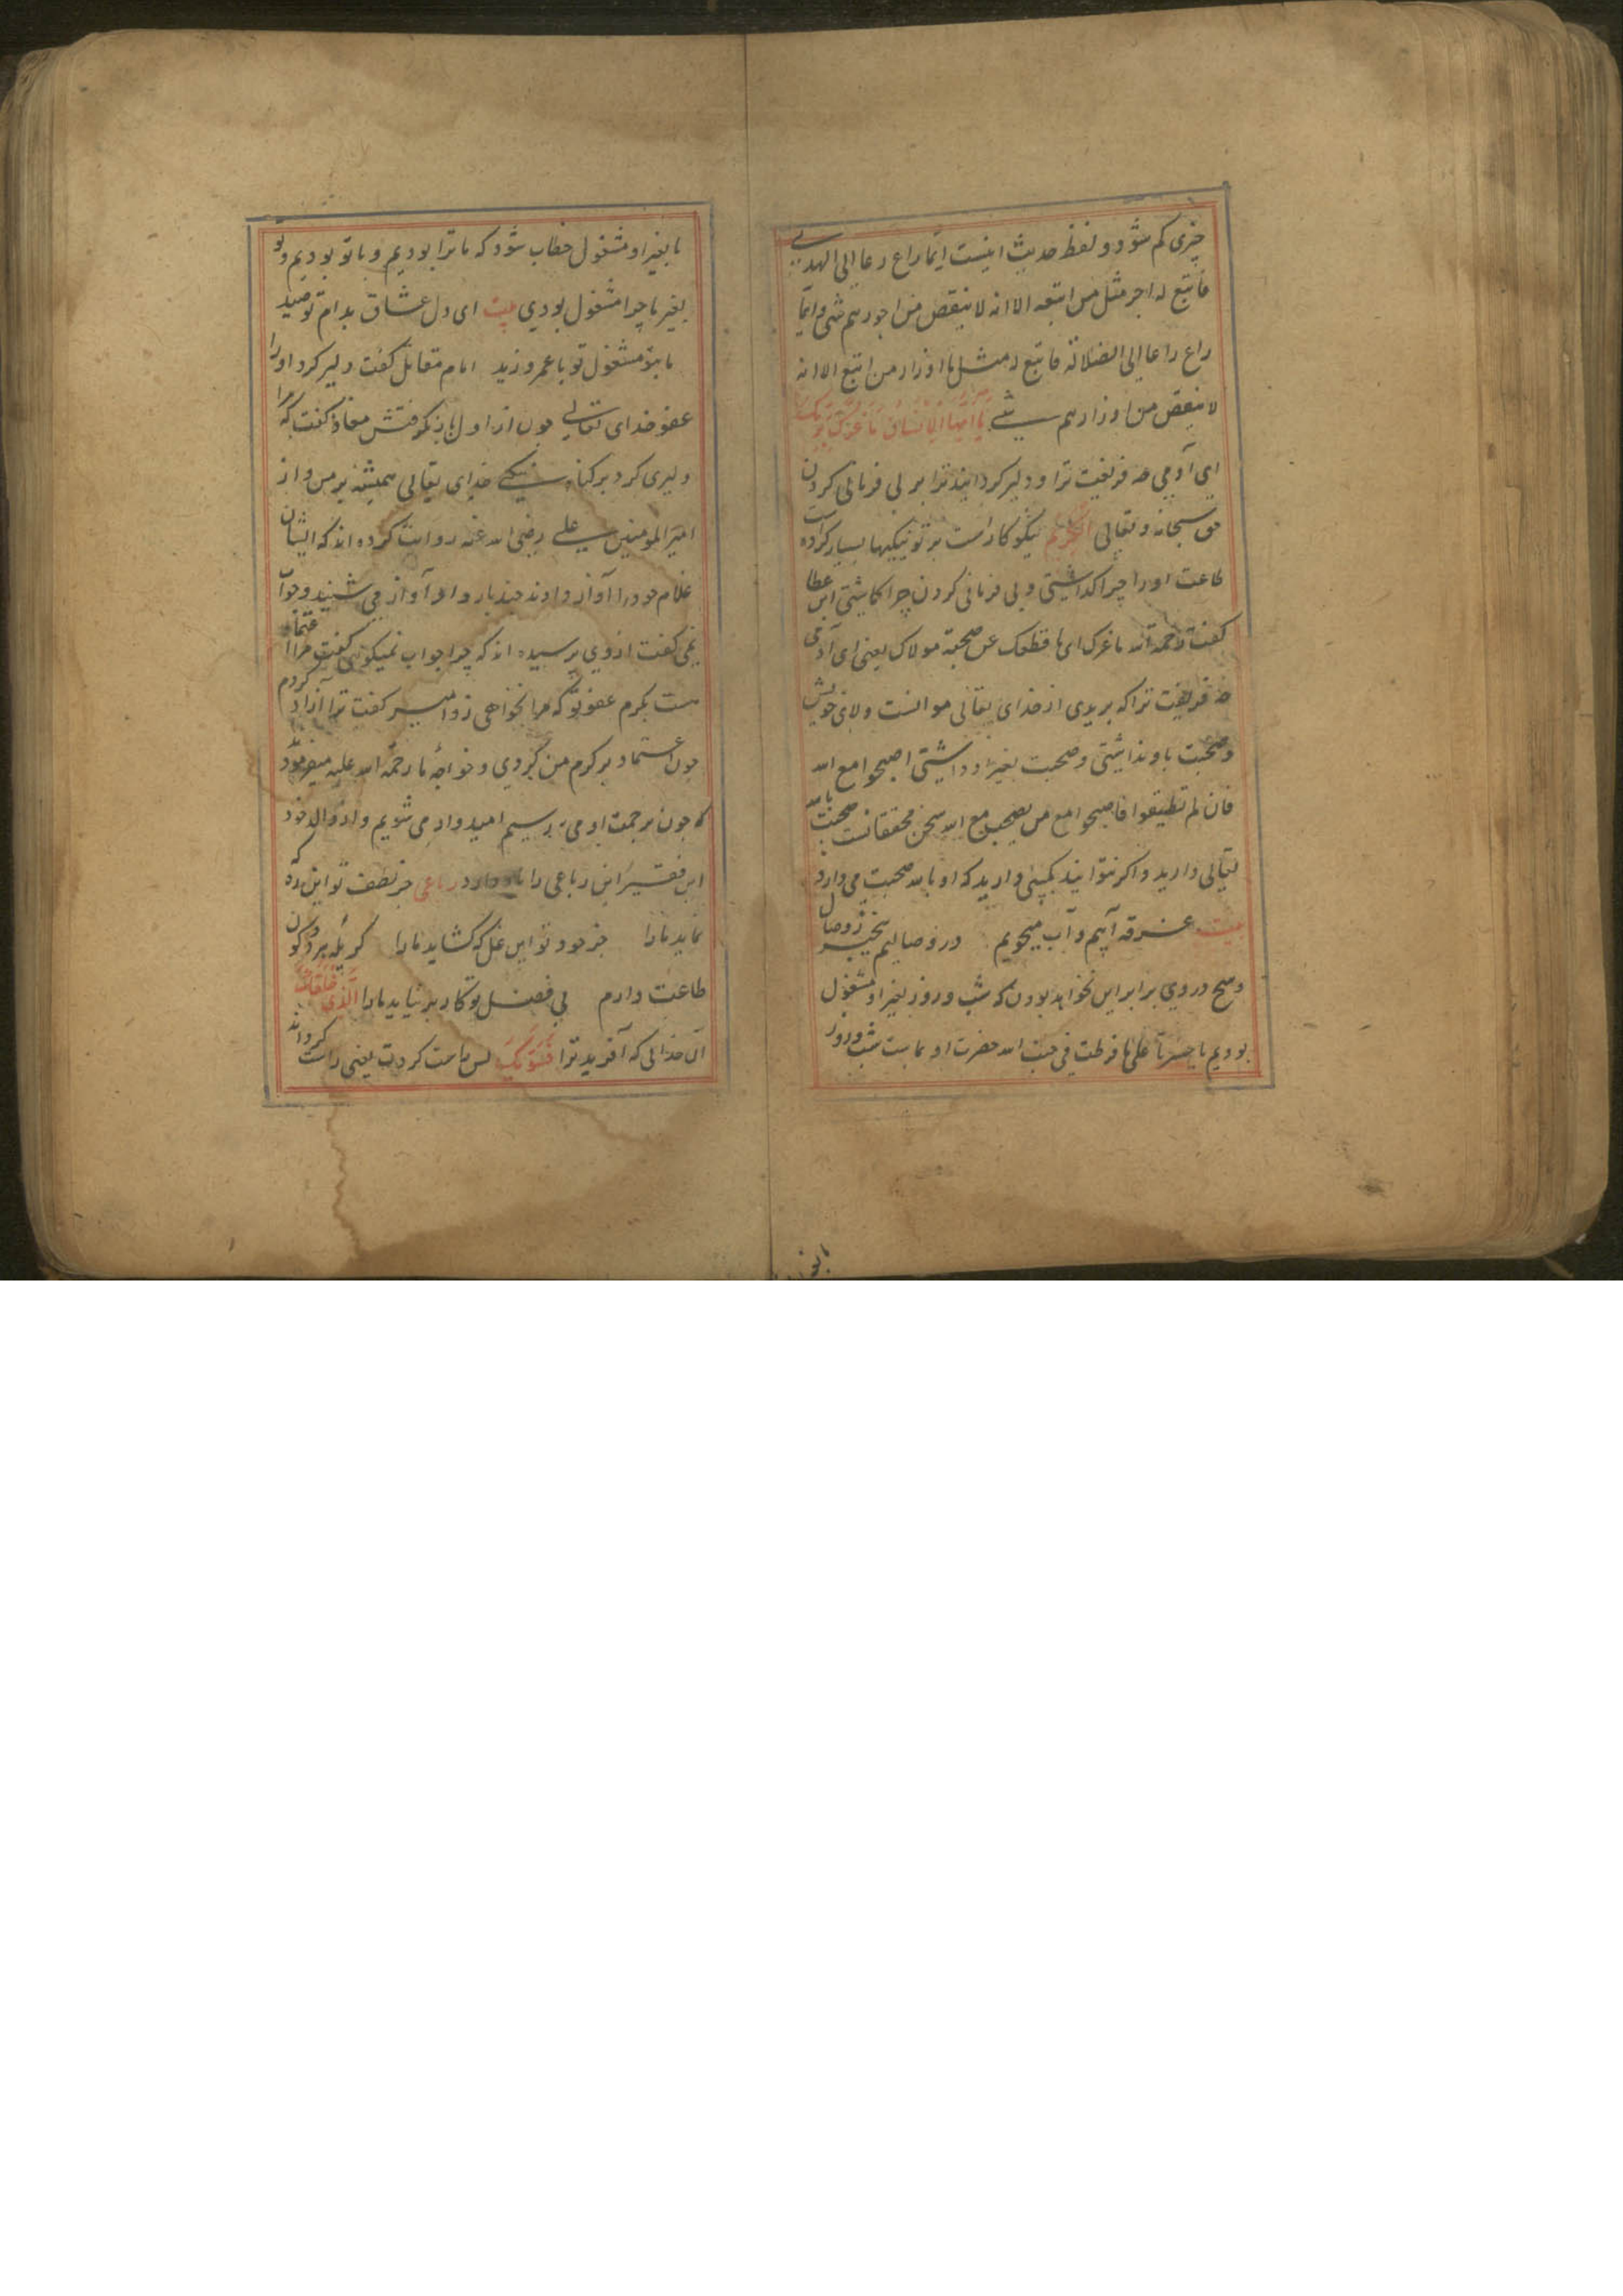 چیزی کم شود و لفظ حدیث اینست ایما داع دعا الی الهدی
فاتبع له اجر مثل من اتبعه الا انه لا ینقص من اجورهم شی و ایما
داع دعا الی الضلالة فاتبع له مثل اوزار من اتبع الا انه
لا ینقص من اوزارهم شی یا ایها الانسان ما غرک بربک
ای آدمی چه فریفت ترا و دلیر گردانید ترا بر بی فرمانی کردن
حق سبحانه و تعالی الکریم نیکو کار است بر تو نیکیها بسیار کرده است
طاعت او را چرا گذاشتی و بی فرمانی کردن چرا کاشتی ابن عطا
گفت رحمه الله ما غرک ای ما قطعک عن صحبة مولاک یعنی ای آدمی
چه فریفت ترا که بریدی از خدای تعالی موانست ولای خویش
و صحبت باو نداشتی و صحبت بغیر او داشتی اصحبوا مع الله
فان لم تطیقوا فاصحبوا مع من یصحب مع الله سخن محققانست صحبت بالله
تعالی دارید و اگر نتوانید بکسی دارید که او بالله صحبت می دارد
بیت غرقه آبیم و آب میجویم در وصالیم بیخبر ز وصال
و هیچ دردی برابر این نخواهد بودن که شب و روز بغیر او مشغول
بودیم یا حسرتا علی ما فرطت فی جنب الله حضرت او بماست شب و روز
ما بغیر او مشغول خطاب شود که ما ترا بودیم و با تو بودیم و تو
بغیر ما چرا مشغول بودی بیت ای دل عشاق بدام تو صید
ما بتو مشغول تو با عمرو و زید امام مقاتل گفت دلیر کرد او را
عفو خدای تعالی چون از اول باز نگرفتش معاذ گفت که مرا
دلیری کرد بر گناه نیکی خدای تعالی همیشه بر من و از
امیر المومنین علی رضی الله عنه روایت کرده اند که ایشان
غلام خود را آواز دادند چند بار و او آواز می شنید و جواب
نمی گفت از وی پرسیده اند که چرا جواب نمیگوئی گفت مرا اعتماد
هست بکرم عفو تو که مرا نخواهی زد امیر گفت ترا آزاد کردم
چون اعتماد بر کرم من کردی و خواجه ما رحمة الله علیه میفرمودند
که چون برحمت او می رسیم امیدوار می شویم و از والد خود
این فقیر این رباعی را یاد دارد رباعی جز لطف تو این ره که
نماید ما را جز جود تو این غل که گشاید ما را گر پله هر دو کون
طاعت دارم بی فضل تو کار بر نیاید ما را الذی خلقک
آن خدائی که آفرید ترا فسویک پس راست کردت یعنی راست گردانید